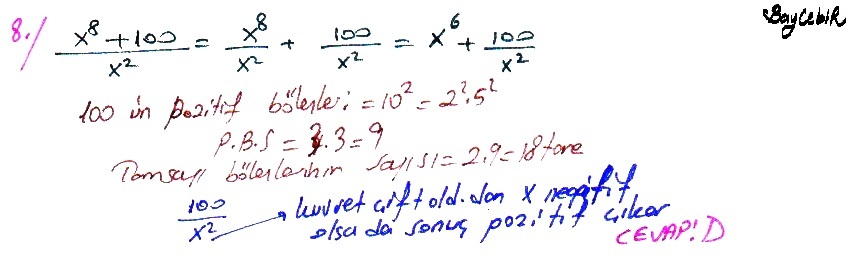 BayCebiR
8./ x⁸+100/x² = x⁸/x² + 100/x² = x⁶ + 100/x²
100 ün pozitif bölenleri = 10² = 2².5²
P.B.S = 3.3 = 9
Tamsayı bölenlerinin sayısı = 2.9 = 18 tane
100/x² → kuvvet çift old.dan x negatif
olsa da sonuç pozitif çıkar
CEVAP: D